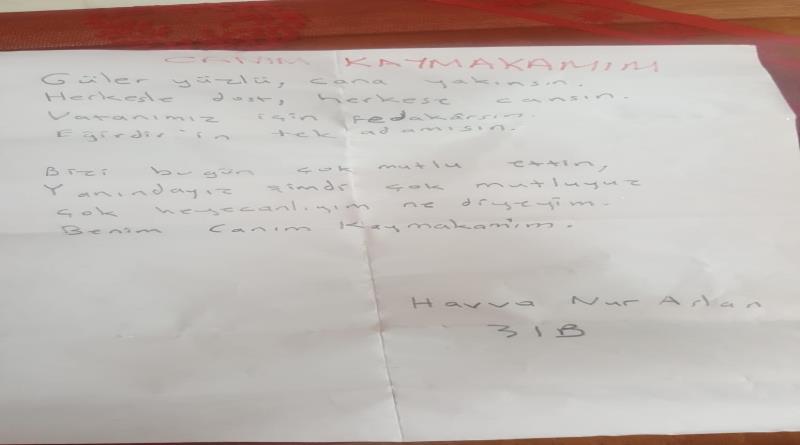 CANIM KAYMAKAMIM
Güler yüzlü, cana yakınsın.
Herkesle dost, herkese cansın.
Vatanımız için fedakârsın.
Eğirdir'in tek adamısın.
Bizi bugün çok mutlu ettin,
Yanındayız şimdi çok mutluyuz
Çok heyecanlıyım ne diyeyim.
Benim Canım Kaymakamım.
Havva Nur Aslan
3/B